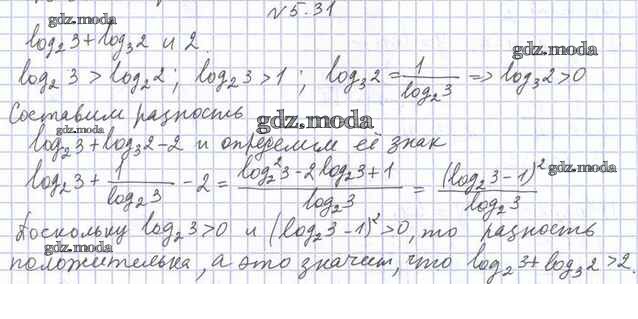 №5.31
gdz.moda
log₂3+log₃2 и 2.
gdz.moda
log₂3>log₂2; log₂3>1; log₃2=1/log₂3 => log₃2>0
Составим разность
gdz.moda
gdz.moda
log₂3+log₃2-2 и определим её знак
log₂3+1/log₂3-2=(log₂²3-2log₂3+1)/log₂3=(log₂3-1)²/log₂3
gdz.moda
Поскольку log₂3>0 и (log₂3-1)²>0, то разность
gdz.moda
положительна, а это значит, что log₂3+log₃2>2.